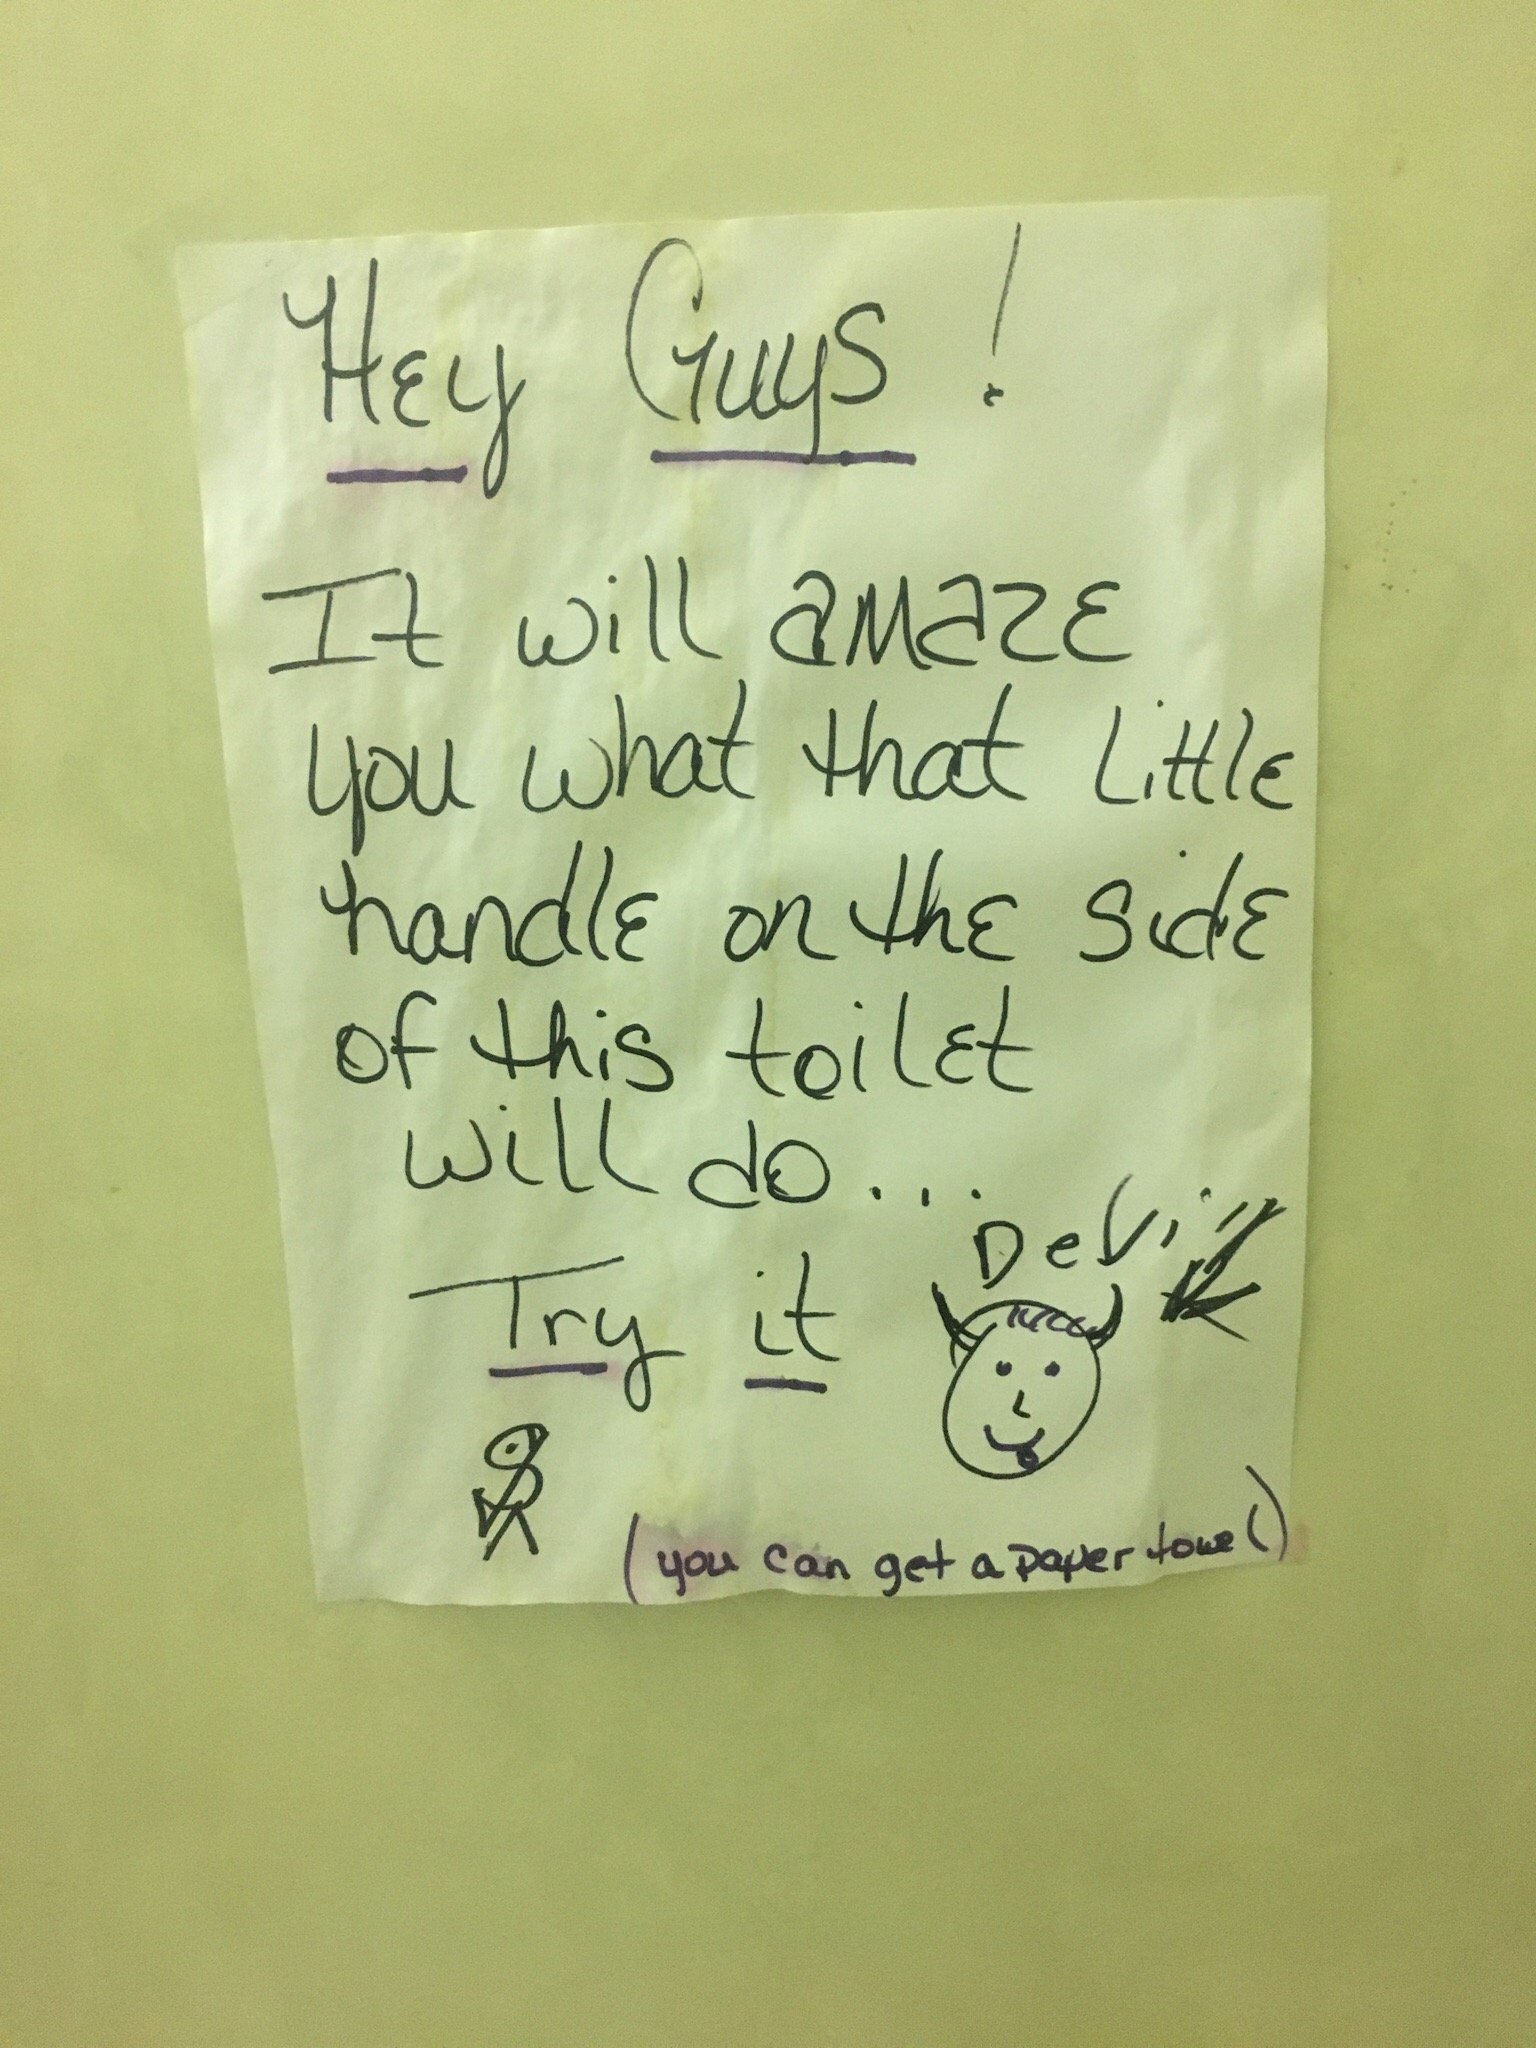 Hey Guys!
It will amaze
you what that little
handle on the side
of this toilet
will do...
Devil
Try it
(you can get a paper towel)